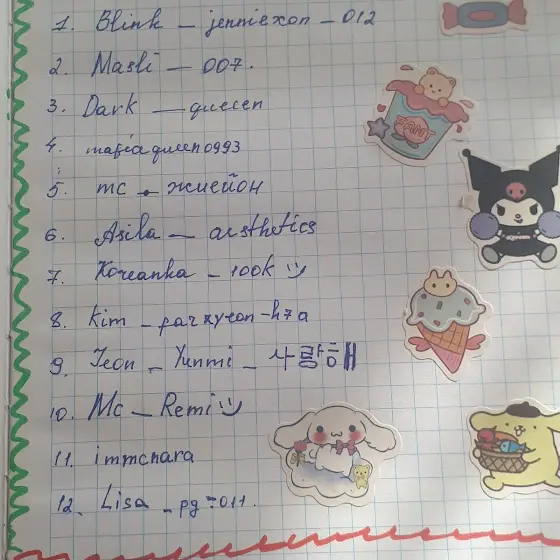 1. Blink – jenniexon – 012
2. Masli – 007.
3. Dark — queeen
4. mafiaqueen0993
5. mc - жиейон
6. Asila – aesthetics
7. Koreanka – 100k :)
8. Kim – parkyeon-h7a
9. Jeon – Yunmi – 사랑해
10. Mc – Remi :)
11. immchara
12. Lisa – pg-011.